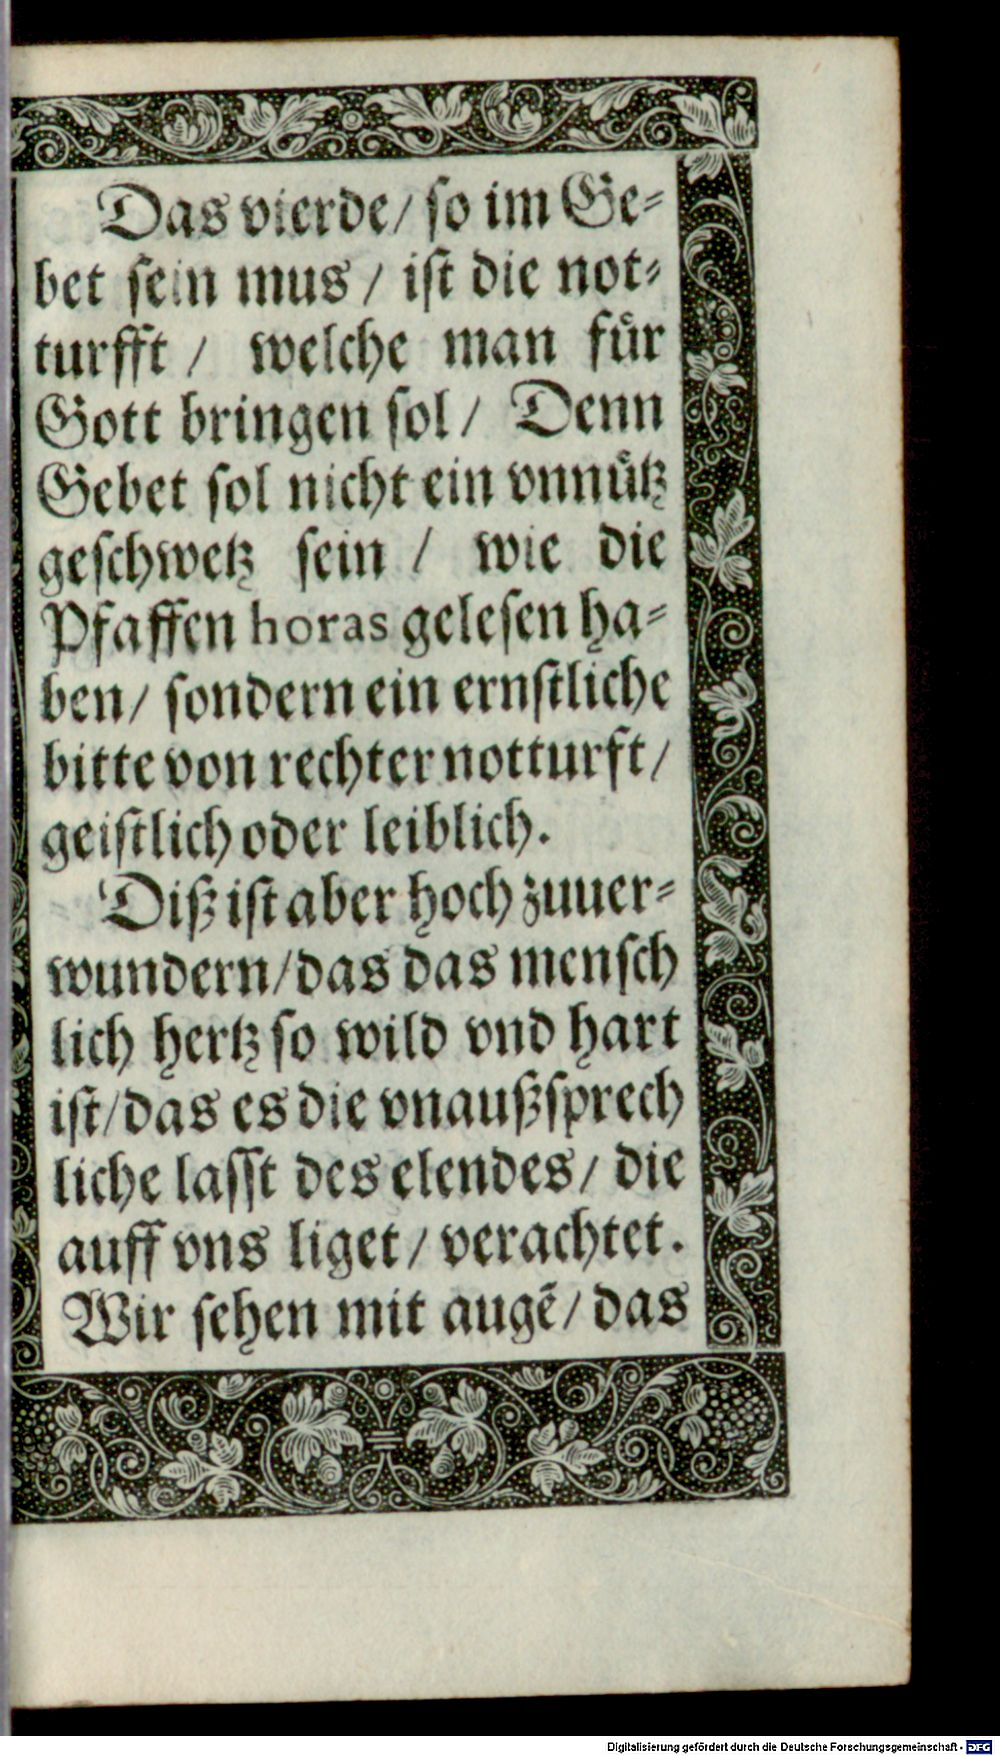 Das vierde/ so im Ge⸗
bet sein mus / ist die not⸗
turfft / welche man fuͤr
Gott bringen sol/ Denn
Gebet sol nicht ein vnnuͤtz
geschwetz sein / wie die
Pfaffen horas gelesen ha⸗
ben/ sondern ein ernstliche
bitte von rechter notturft/
geistlich oder leiblich.
Diß ist aber hoch zuuer⸗
wundern/das das mensch
lich hertz so wild vnd hart
ist/das es die vnaußsprech
liche lasst des elendes/ die
auff vns liget/ verachtet.
Wir sehen mit augẽ/ das
Digitalisierung gefördert durch die Deutsche Forschungsgemeinschaft - DFG